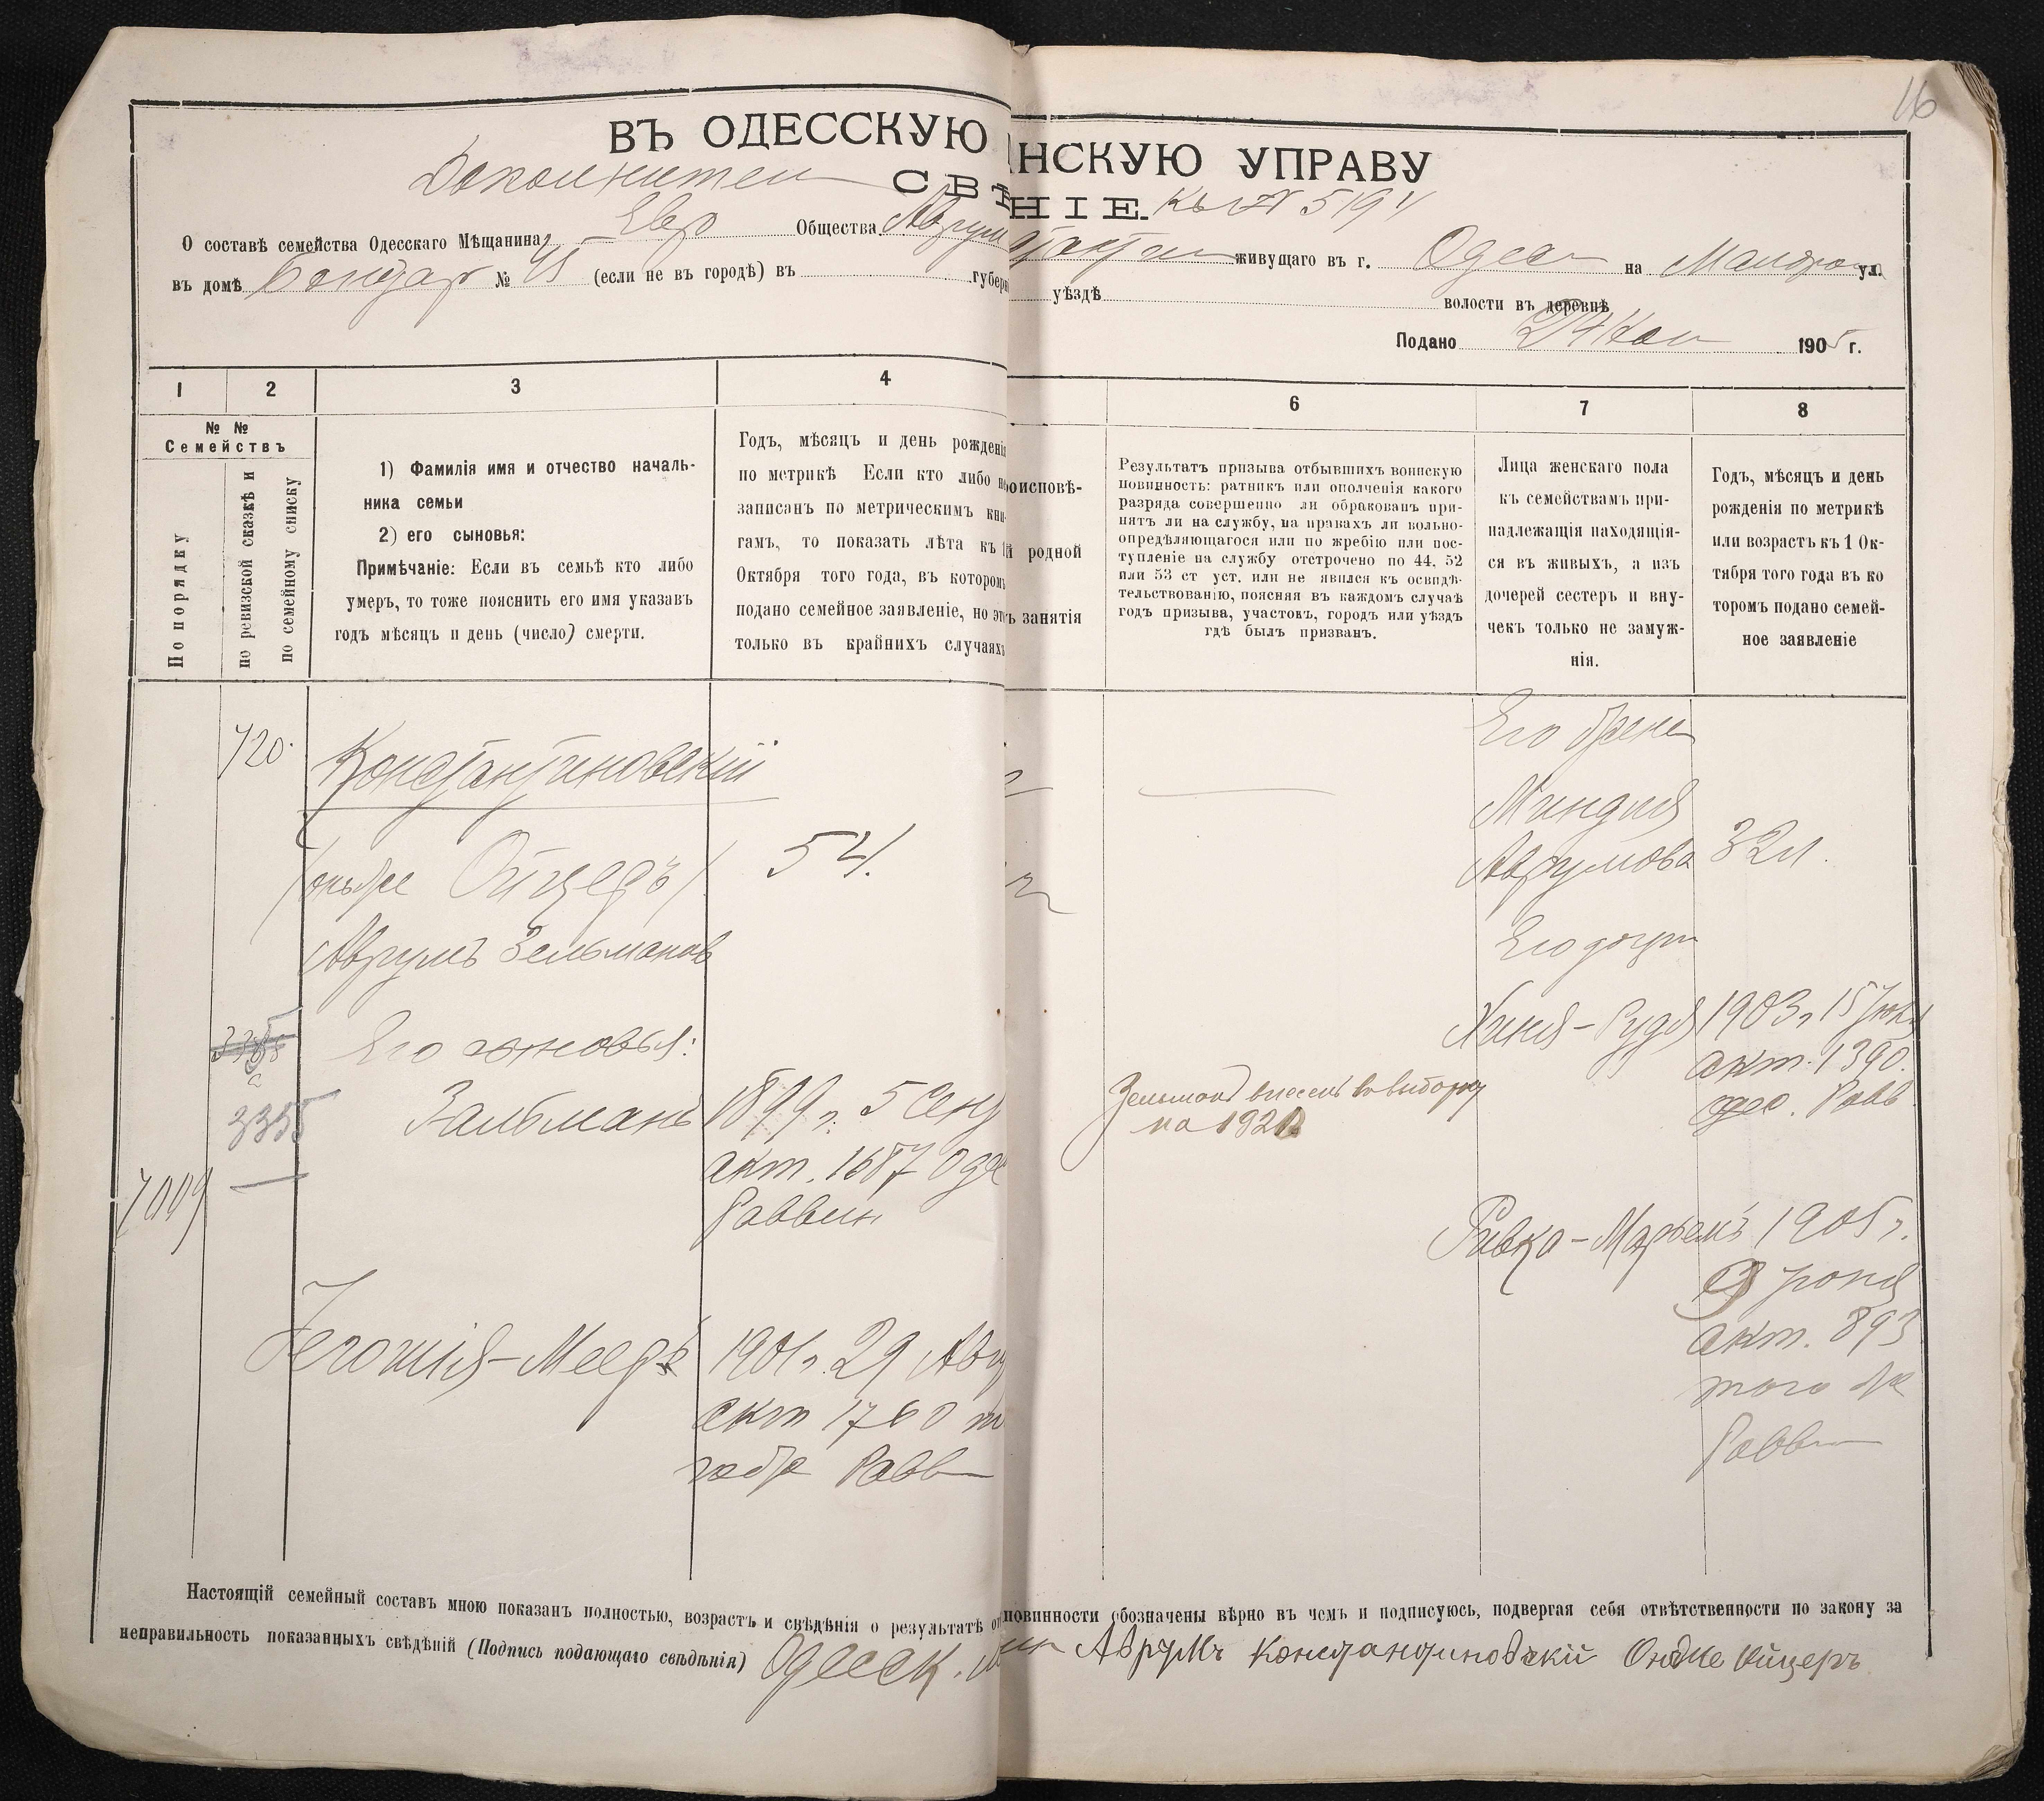 16
ВЪ ОДЕССКУЮ
НСКУЮ УПРАВУ
Дополнител
СВѢ
НІЕ. къ № 5194
О составѣ семейства Одесскаго Мѣщанина Евр Общества Аврум
живущаго въ г. Одесс на ул.
въ домѣ Бондар № (если не въ городѣ) въ губерні
уѣздѣ волости въ деревнѣ
Подано 24 1905 г.
1 2 3 4
6 7 8
№ №
Семействъ
По порядку
по ревизской сказкѣ и
по семейному списку
1) Фамилія имя и отчество началь-
ника семьи
2) его сыновья:
Примѣчаніе: Если въ семьѣ кто либо
умеръ, то тоже пояснить его имя указавъ
годъ мѣсяцъ и день (число) смерти.
Годъ, мѣсяцъ и день рожденія
по метрикѣ Если кто либо не
записанъ по метрическимъ кни-
гамъ, то показать лѣта къ 1
Октября того года, въ которомъ
подано семейное заявленіе, но это
только въ крайнихъ случаяхъ
роисповѣ-
й родной
ъ занятія
Результатъ призыва отбывшихъ воинскую
повинность: ратникъ или ополченія какого
разряда совершенно ли обракованъ при-
нятъ ли на службу, на правахъ ли вольно-
опредѣляющагося или по жребію или пос-
тупленіе на службу отстрочено по 44, 52
или 53 ст уст. или не явился къ освидѣ-
тельствованію, поясняя въ каждомъ случаѣ
годъ призыва, участокъ, городъ или уѣздъ
гдѣ былъ призванъ.
Лица женскаго пола
къ семействамъ при-
надлежащія находящія-
ся въ живыхъ, а изъ
дочерей сестеръ и вну-
чекъ только не замуж-
нія.
Годъ, мѣсяцъ и день
рожденія по метрикѣ
или возрастъ къ 1 Ок-
тября того года въ ко
торомъ подано семей-
ное заявленіе
720.
Константиновскій
(онъ же Ойцеръ)
54.
Аврумъ Зельманов
Его сыновья:
3355
Зальманъ
1899 г. 5 Сент
акт. 1687 Оде
Раввин
7009
Іегошія-Мееръ
1901 г. 29 Авг
акт 1760 т
го же Равв
Зельманъ внесенъ въ выборку
на 1921
Его жена
Миндля
Аврумова 32 л.
Его дочери
Хиня-Рудя 1903 г. 15 Іюня
акт. 1390.
Одес. Равв
Ривка-Марьемъ 1905 г.
3 Іюня
акт. 893
того же
Равви
Настоящій семейный составъ мною показанъ полностью, возрастъ и свѣдѣнія о результатѣ от
повинности обозначены вѣрно въ чемъ и подписуюсь, подвергая себя отвѣтственности по закону за
неправильность показанныхъ свѣдѣній (Подпись подающаго свѣдѣнія) Одесск. М
Аврумъ Константиновскій Онъ же Ойцеръ